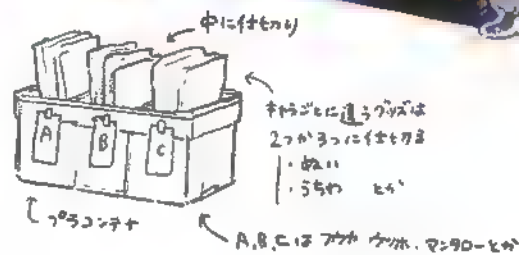 中に仕切り
A
B
C
キャラごとに違うグッズは
2つか3つに仕切る
・ぬい
・うちわ とか
プラコンテナ
A,B,Cは フウカ ウツホ、マンタローとか